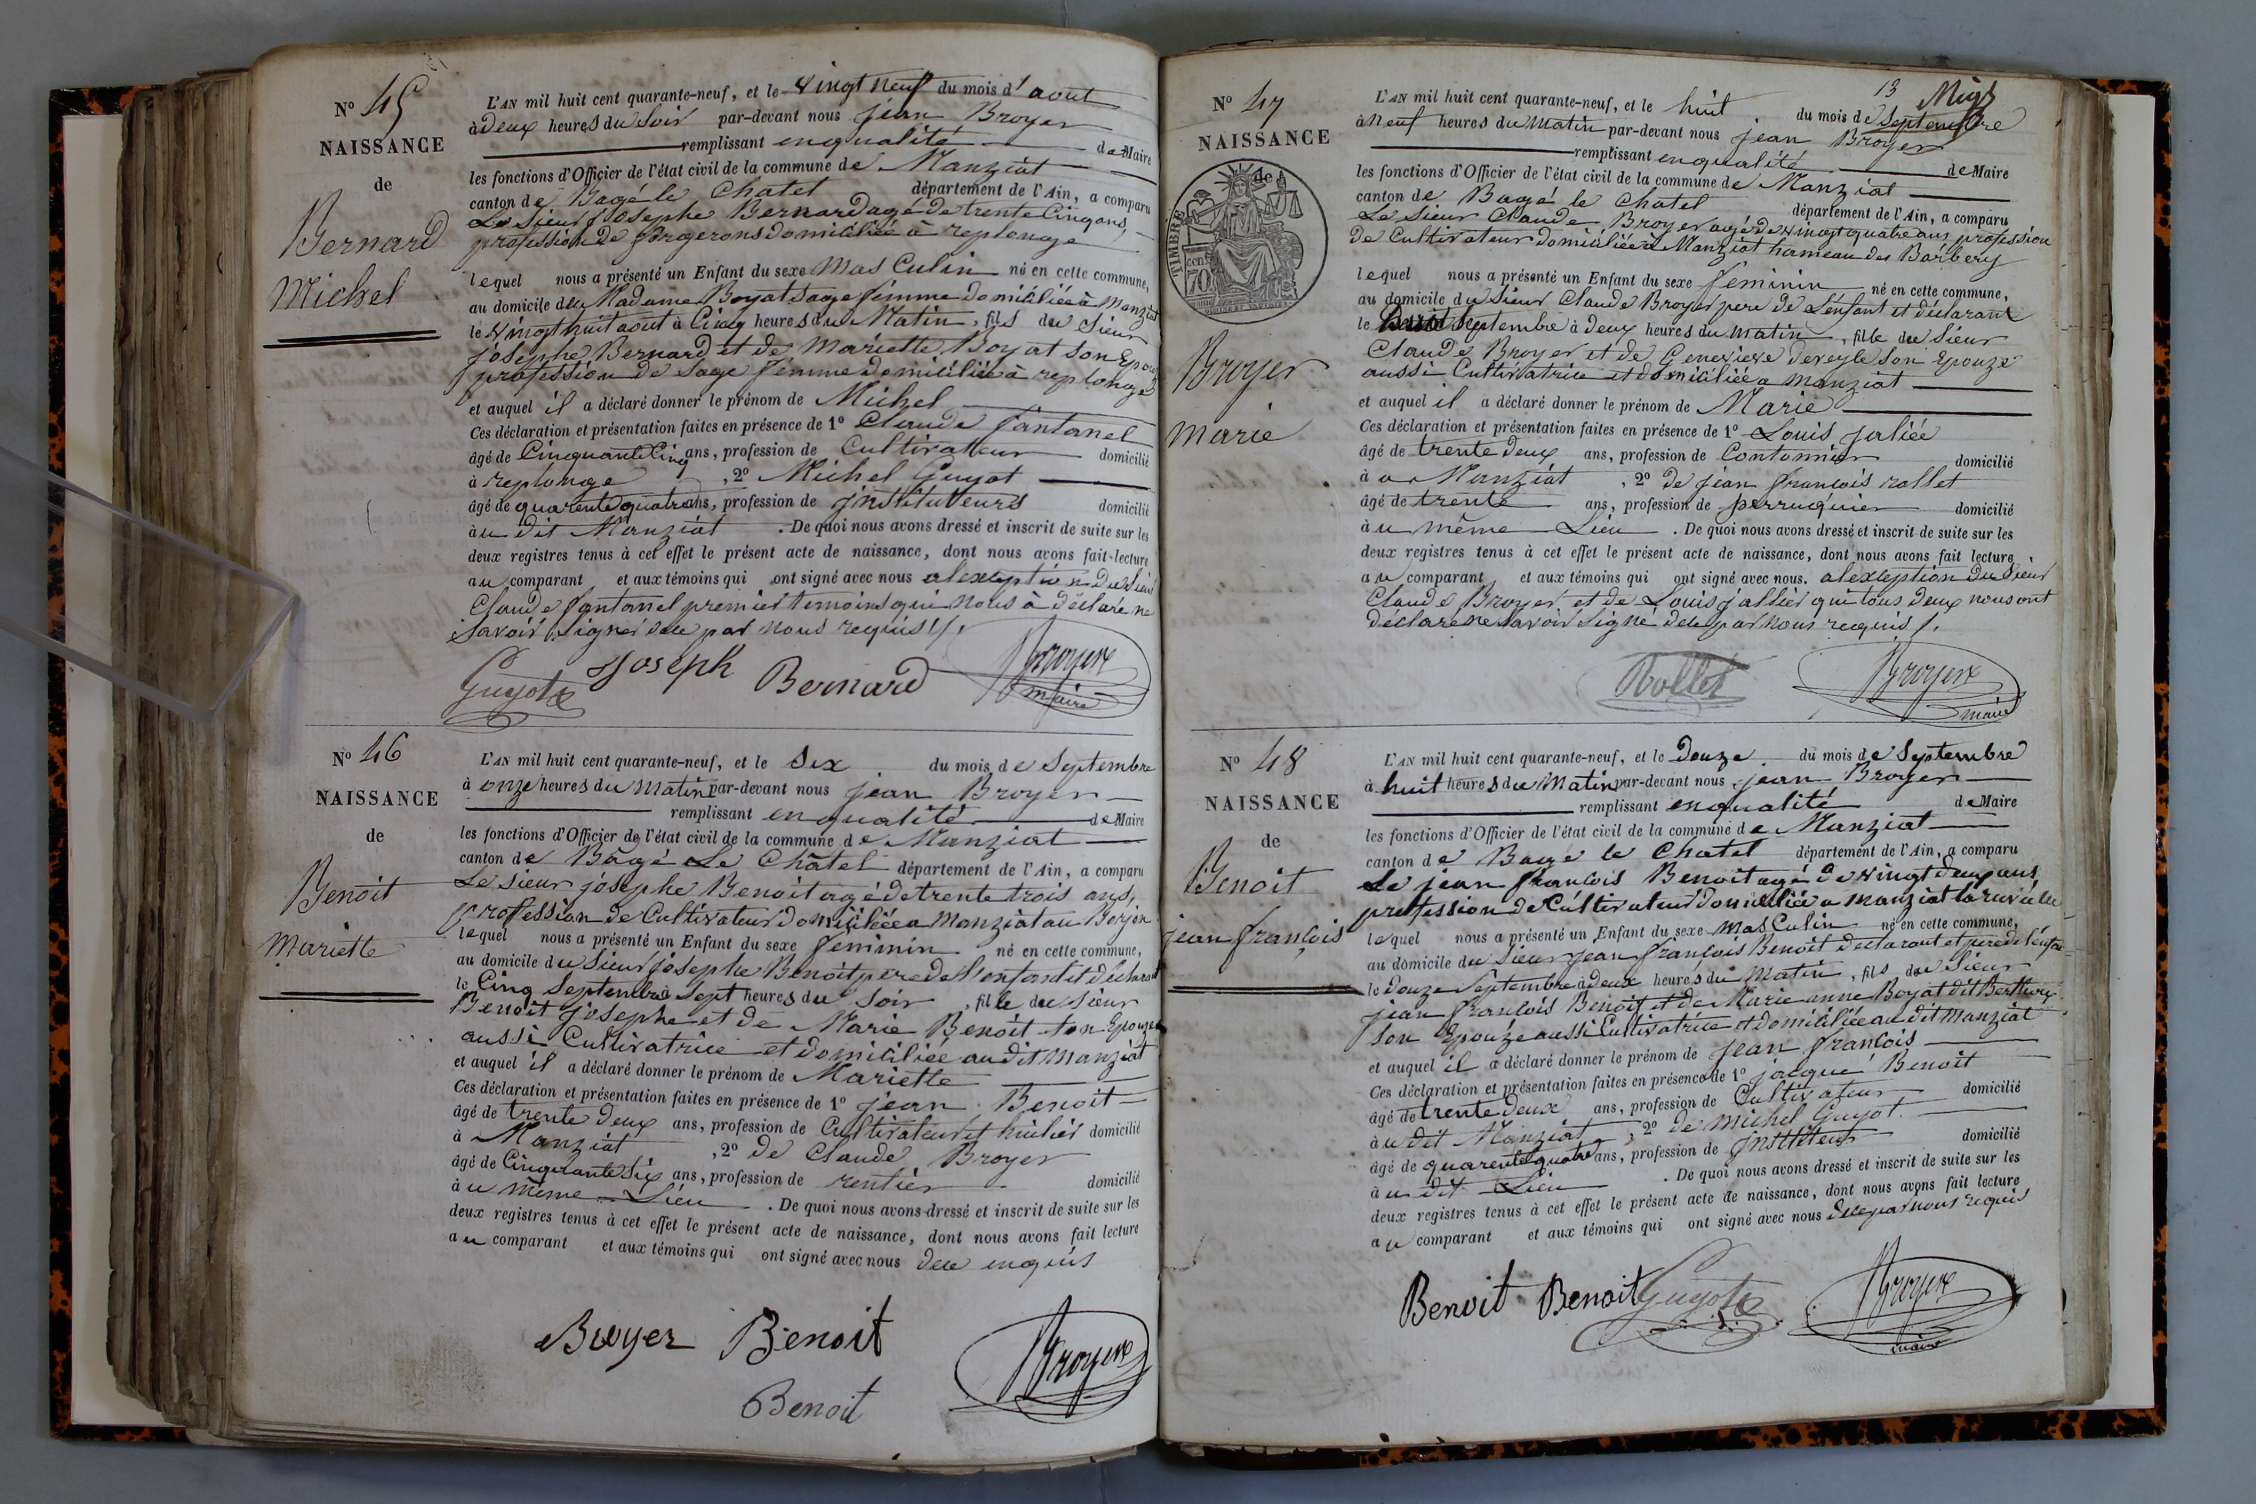 N° 45
NAISSANCE
de
Bernard
Michel
L'AN mil huit cent quarante-neuf, et le vingt neuf du mois d'aout
à deux heures du Soir par-devant nous jean Broyer
remplissant en qualité de Maire
les fonctions d'Officier de l'état civil de la commune de Manziat
canton de Bagé le Chatel département de l'Ain, a comparu
Le Sieur josephe Bernard agé de trente Cinq ans,
profession de domiciliée à replonge
lequel nous a présenté un Enfant du sexe Mas Culin né en cette commune,
au domicile de Madame Boyat Sage femme domiciliée à Manziat
le vingt huit aout à Cinq heures du Matin, fils du Sieur
josephe Bernard et de Mariette Boyat son Epouze
profession de Sage femme domiciliée à replonge
et auquel il a déclaré donner le prénom de Michel
Ces déclaration et présentation faites en présence de 1° Claude fantanel
âgé de Cinquante Cinq ans, profession de Cultivateur domicilié
à replonge, 2° Michel Guyot
âgé de quarente quatre ans, profession de jnstituteurs domicilié
à u dit Manziat. De quoi nous avons dressé et inscrit de suite sur les
deux registres tenus à cet effet le présent acte de naissance, dont nous avons fait lecture
au comparant et aux témoins qui ont signé avec nous alexception du Sieur
Claude fantanel premier temoins qui nous à déclaré ne
Savoir Signer dee par nous requis /.
Guyot Joseph Bernard Broyer
maire
N° 46
NAISSANCE
de
Benoit
Mariette
L'AN mil huit cent quarante-neuf, et le Six du mois de Septembre
à onze heures du Matin par-devant nous jean Broyer
remplissant en qualité de Maire
les fonctions d'Officier de l'état civil de la commune de Manziat
canton de Bagé Le Châtel département de l'Ain, a comparu
Le Sieur josephe Benoit agé de trente trois ans,
profession de Cultivateur domiciliée a Manziat au Borjon
lequel nous a présenté un Enfant du sexe feminin né en cette commune,
au domicile du Sieur josephe Benoit pere de l'enfant et déclarant
le Cinq Septembre à Sept heures du Soir, fille du Sieur
Benoit josephe et de Marie Benoit son Epouze
aussi Cultivatrice et domiciliée au dit Manziat
et auquel il a déclaré donner le prénom de Mariette
Ces déclaration et présentation faites en présence de 1° jean Benoit
âgé de trente deux ans, profession de Cultivateur et huilier domicilié
à Manziat, 2° de Claude Broyer
âgé de Cinquante Six ans, profession de rentier domicilié
à u même Lieu. De quoi nous avons dressé et inscrit de suite sur les
deux registres tenus à cet effet le présent acte de naissance, dont nous avons fait lecture
au comparant et aux témoins qui ont signé avec nous dee
Broyer Benoit Broyer
Benoit
13
N° 47
NAISSANCE
de
TIMBRE
70
Broyer
marie
L'AN mil huit cent quarante-neuf, et le huit du mois de Septembre
à Neuf heures du Matin par-devant nous jean Broyer
remplissant en qualité de Maire
les fonctions d'Officier de l'état civil de la commune de Manziat
canton de Bagé le Chatel département de l'Ain, a comparu
Le Sieur Claude Broyer agé de vingt quatre ans profession
de Cultivateur domiciliée à Manziat hameau des Barbery
lequel nous a présenté un Enfant du sexe feminin né en cette commune,
au domicile du Sieur Claude Broyer pere de L'enfant et déclarant
le Septembre à deux heures du matin, fille du Sieur
Claude Broyer et de Genevieve deveyle Son Epouze
aussi Cultivatrice et domiciliée a Manziat
et auquel il a déclaré donner le prénom de Marie
Ces déclaration et présentation faites en présence de 1° Louis jaliée
âgé de trente deux ans, profession de Contonnier domicilié
à a Manziat, 2° de jean françois rollet
âgé de trente ans, profession de perruquier domicilié
à u même Lieu. De quoi nous avons dressé et inscrit de suite sur les
deux registres tenus à cet effet le présent acte de naissance, dont nous avons fait lecture
au comparant et aux témoins qui ont signé avec nous. alexception du Sieur
Claude Broyer et de Louis jallier qui tous deux nous ont
déclaré ne Savoir Signé dee par nous requis /.
Rollet Broyer
maire
N° 48
NAISSANCE
de
Benoit
jean françois
L'AN mil huit cent quarante-neuf, et le Douze du mois de Septembre
à huit heures du Matin par-devant nous jean Broyer
remplissant en qualité de Maire
les fonctions d'Officier de l'état civil de la commune de Manziat
canton de Bagé le Chatel département de l'Ain, a comparu
Le jean francois Benoit agé de vingt deux ans
profession de Cultivateur domiciliée a Manziat
lequel nous a présenté un Enfant du sexe Mas Culin né en cette commune,
au domicile du Sieur jean francois Benoit declarant et pere de l'enfant
le douze Septembre à deux heures du Matin, fils du Sieur
jean francois Benoit et de Marie anne Boyat dit
Son Epouze aussi Cultivatrice et domiciliée au dit Manziat
et auquel il a déclaré donner le prénom de jean francois
Ces déclaration et présentation faites en présence de 1° jacque Benoit
âgé de trente deux ans, profession de Cultivateur domicilié
à u dit Manziat, 2° de michel Guyot
âgé de quarente quatre ans, profession de jnstituteur domicilié
à u dit Lieu. De quoi nous avons dressé et inscrit de suite sur les
deux registres tenus à cet effet le présent acte de naissance, dont nous avons fait lecture
au comparant et aux témoins qui ont signé avec nous dee par nous requis
Benoit Benoit Guyot Broyer
maire